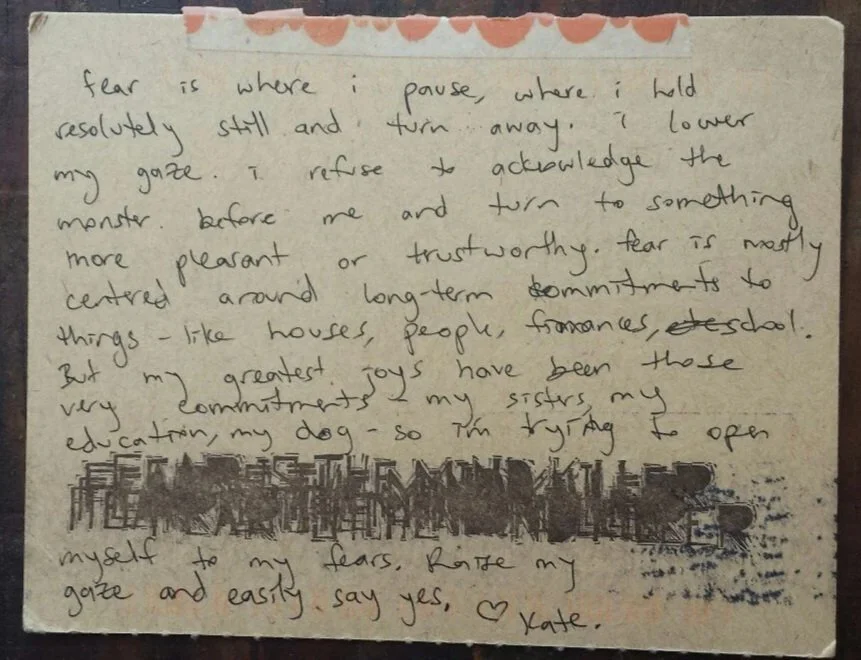 fear is where i pause, where i hold
resolutely still and turn away. i lower
my gaze. i refuse to acknowledge the
monster before me and turn to something
more pleasant or trustworthy. fear is mostly
centered around long-term commitments to
things - like houses, people, finances, school.
But my greatest joys have been those
very commitments - my sisters, my
education, my dog - so i'm trying to open
FEAR IS THE MIND KILLER
myself to my fears. Raise my
gaze and easily say yes. ♡ Kate.